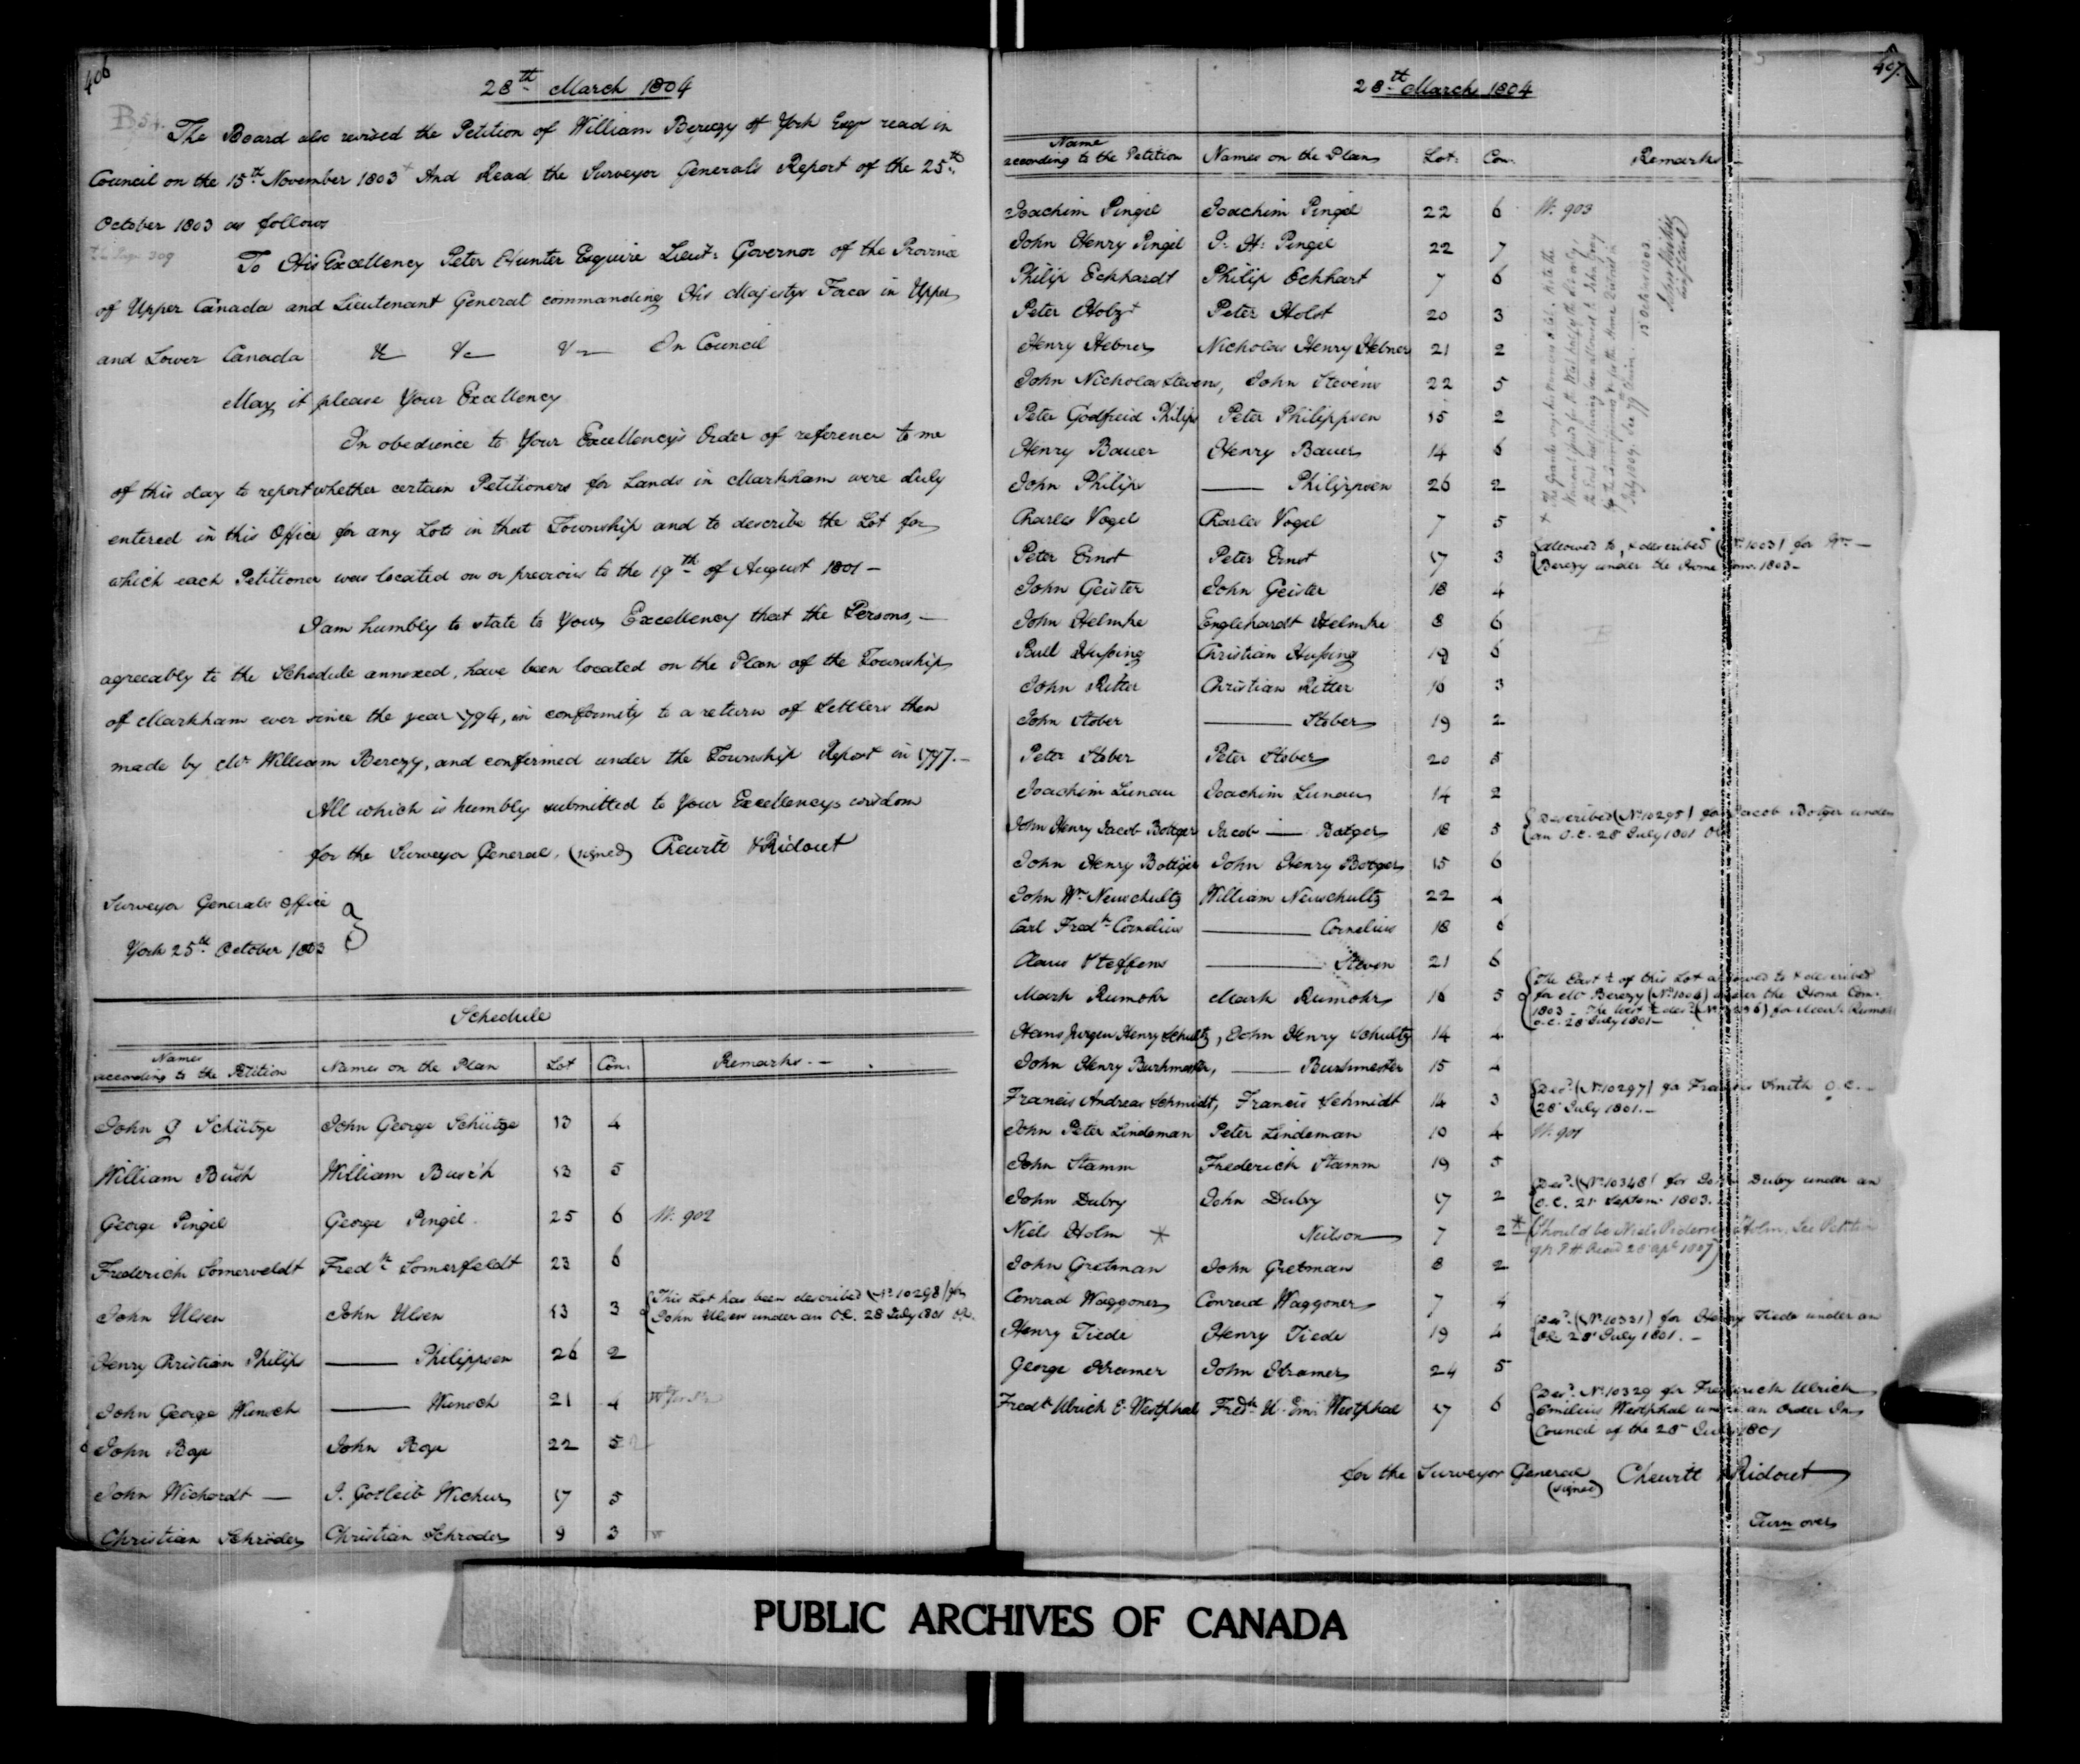 406
28th March 1804
B 54.
The Board also revised the Petition of William Berczy of York Esqr read in
Council on the 15th November 1803 + And Read the Surveyor Generals Report of the 25th
October 1803 as follows
309
To His Excellency Peter Hunter Esquire Lieut: Governor of the Province
of Upper Canada and Lieutenant General commanding His Majestys Forces in Upper
and Lower Canada &c &c &c In Council
May it please Your Excellency
In obedience to Your Excellency's Order of reference to me
of this day to report whether certain Petitioners for Lands in Markham were duly
entered in this Office for any Lots in that Township and to describe the Lot for
which each Petitioner was located on or previous to the 19th of August 1801 –
I am humbly to state to Your Excellency that the Persons, –
agreeably to the Schedule annexed, have been located on the Plan of the Township
of Markham ever since the year 1794, in conformity to a return of Settlers then
made by Mr William Berczy, and confirmed under the Township Report in 1797. –
All which is humbly submitted to Your Excellencys wisdom
for the Surveyor General, (signed) Chewitt & Ridout
Surveyor Generals Office
York 25th October 1803
Schedule
Names according to the Petition | Names on the Plan | Lot | Con. | Remarks. –
John G Schütze | John George Schütze | 13 | 4
William Bush | William Busch | 13 | 5
George Pingel | George Pingel. | 25 | 6 | W. 902
Frederich Somerveldt | Fredk Somerfeldt | 23 | 6
John Ulsen | John Ulsen | 13 | 3 | This Lot has been described (No 10298) for
John Ulsen under an O.C. 28 July 1801
Henry Christian Philip | —— Philippsen | 26 | 2
John George Wunsch | —— Wunsch | 21 | 4
John Boye | John Boye | 22 | 5
John Wichordt — | J. Gotleib Wichur | 17 | 5
Christian Schröder | Christian Schroder | 9 | 3
407.
28th March 1804
Name according to the Petition | Names on the Plan | Lot: | Con. | Remarks –
Joachim Pingel | Joachim Pingel | 22 | 6 | W. 903
John Henry Pingel | J. H: Pingel | 22 | 7
Philip Eckhardt | Philip Eckhart | 7 | 6
Peter Holzt | Peter Holst | 20 | 3
Henry Hebner | Nicholas Henry Hebner | 21 | 2
John Nicholas Stevens, | John Stevens | 22 | 5
Peter Godfreid Philips | Peter Philippsen | 15 | 2
Henry Bauer | Henry Bauer | 14 | 6
John Philips | —— Philippsen | 26 | 2
Charles Vogel | Charles Vogel | 7 | 5
Peter Ernst | Peter Ernst | 17 | 3 | allowed to, & described (No 1003) for Wm –
Berczy under the Home Com. 1803 –
John Geister | John Geister | 18 | 4
John Helmke | Englehardt Helmke | 8 | 6
Bull Hussing | Christian Hussing | 19 | 6
John Ritter | Christian Ritter | 16 | 3
John Stober | —— Stober | 19 | 2
Peter Stober | Peter Stober | 20 | 5
Joachim Lunau | Joachim Lunau | 14 | 2
John Henry Jacob Bottger | Jacob —— Botger | 18 | 5 | Described (No 10295) for Jacob Botger under
an O.C. 28 July 1801
John Henry Bottger | John Henry Botger | 15 | 6
John Wm Neuschultz | William Neuschultz | 22 | 4
Carl Fredk Cornelius | —— Cornelius | 18 | 6
Claus Steffens | —— Steven | 21 | 6
Mark Rumohr | Mark Rumohr | 16 | 5 | The East ½ of this Lot allowed to & described
for Mr Berczy (No 1004) under the Home Com.
1803 – The West ½ des'd for Mark Rumohr
O.C. 28 July 1801 –
Hans Jurgen Henry Schultz, | John Henry Schultz | 14 | 4
John Henry Burkmester, | —— Burkmester | 15 | 4
Francis Andreas Schmidt, | Francis Schmidt | 14 | 3 | Des'd. (No 10297) for Francis Smith O.C. –
28 July 1801. –
John Peter Lindeman | Peter Lindeman | 10 | 4 | W. 901
John Stamm | Frederick Stamm | 19 | 5
John Dubry | John Dubry | 17 | 2 | Des'd. (No 10348) for John Dubry under an
O.C. 21 Septem. 1803.
Niels Holm * | Neilson | 7 | 2 | * Should be Niels Holm. See Petition
John Gretman | John Gretman | 8 | 2
Conrad Waggoner | Conrad Waggoner | 7 | 4
Henry Tiede | Henry Tiede | 19 | 4 | Des'd. (No 10331) for Henry Tiede under an
OC 28 July 1801. –
George Kramer | John Kramer | 24 | 5
Fredk Ulrich E. Westphal | Fredk U. Emi Westphal | 17 | 6 | Des'd. No 10329 for Frederick Ulrich
Emilius Westphal under an Order In
Council of the 28 July 1801
for the Surveyor General (signed) Chewitt & Ridout
Turn over
PUBLIC ARCHIVES OF CANADA